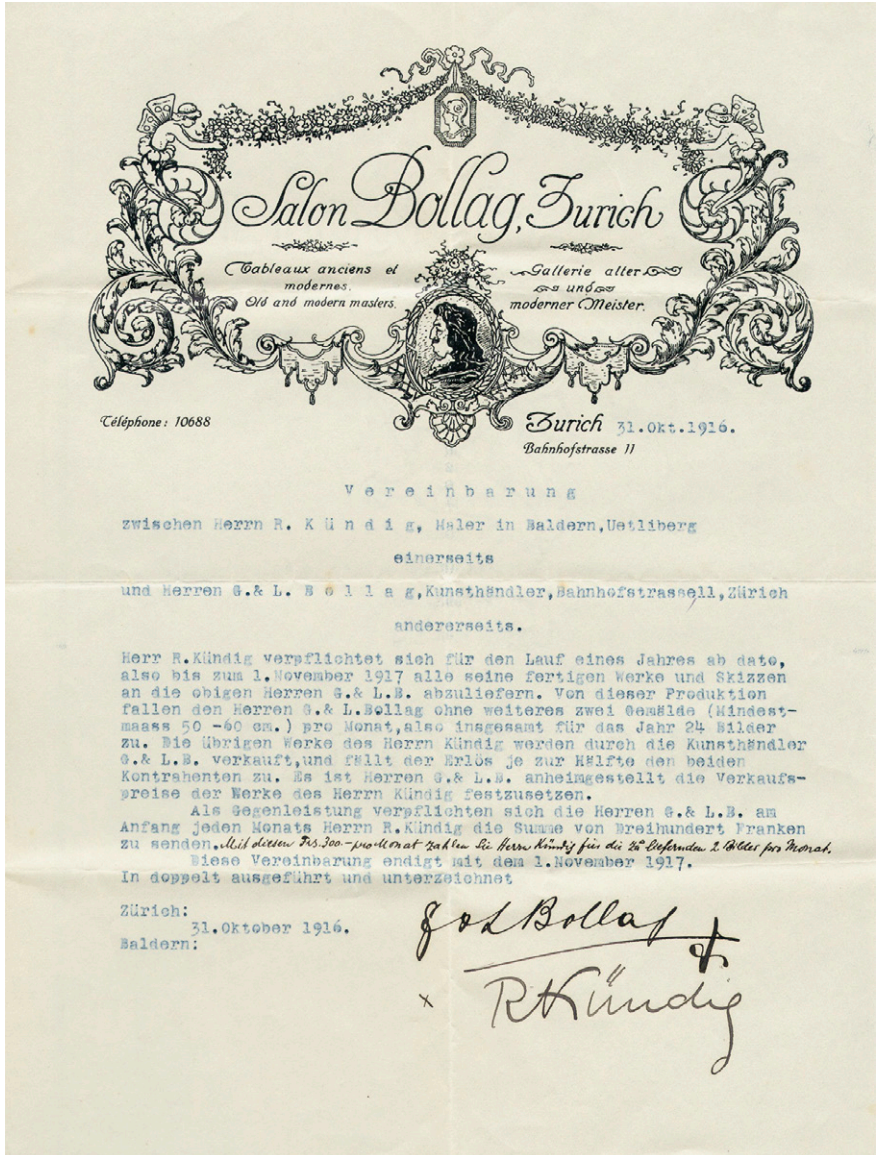 Salon Bollag, Zurich
Tableaux anciens et
modernes.
Old and modern masters.
Gallerie alter
und
moderner Meister.
Téléphone: 10688
Zurich 31.Okt.1916.
Bahnhofstrasse 11
V e r e i n b a r u n g
zwischen Herrn R. K ü n d i g, Maler in Baldern,Uetliberg
einerseits
und Herren G.& L. B o l l a g,Kunsthändler,Bahnhofstrassell,Zürich
andererseits.
Herr R.Kündig verpflichtet sich für den Lauf eines Jahres ab dato,
also bis zum 1.November 1917 alle seine fertigen Werke und Skizzen
an die obigen Herren G.& L.B. abzuliefern. Von dieser Produktion
fallen den Herren G.& L.Bollag ohne weiteres zwei Gemälde (Mindest-
maass 50 -60 cm.) pro Monat,also insgesamt für das Jahr 24 Bilder
zu. Die übrigen Werke des Herrn Kündig werden durch die Kunsthändler
G.& L.B. verkauft,und fällt der Erlös je zur Hälfte den beiden
Kontrahenten zu. Es ist Herren G.& L.B. anheimgestellt die Verkaufs-
preise der Werke des Herrn Kündig festzusetzen.
Als Gegenleistung verpflichten sich die Herren G.& L.B. am
Anfang jeden Monats Herrn R.Kündig die Summe von Dreihundert Franken
zu senden. Mit diesen Frs.300.- pro Monat zahlen Sie Herrn Kündig für die zu liefernden 2 Bilder pro Monat.
Diese Vereinbarung endigt mit dem 1.November 1917.
In doppelt ausgeführt und unterzeichnet
Zürich:
31.Oktober 1916.
Baldern:
G & L Bollag
x RKündig